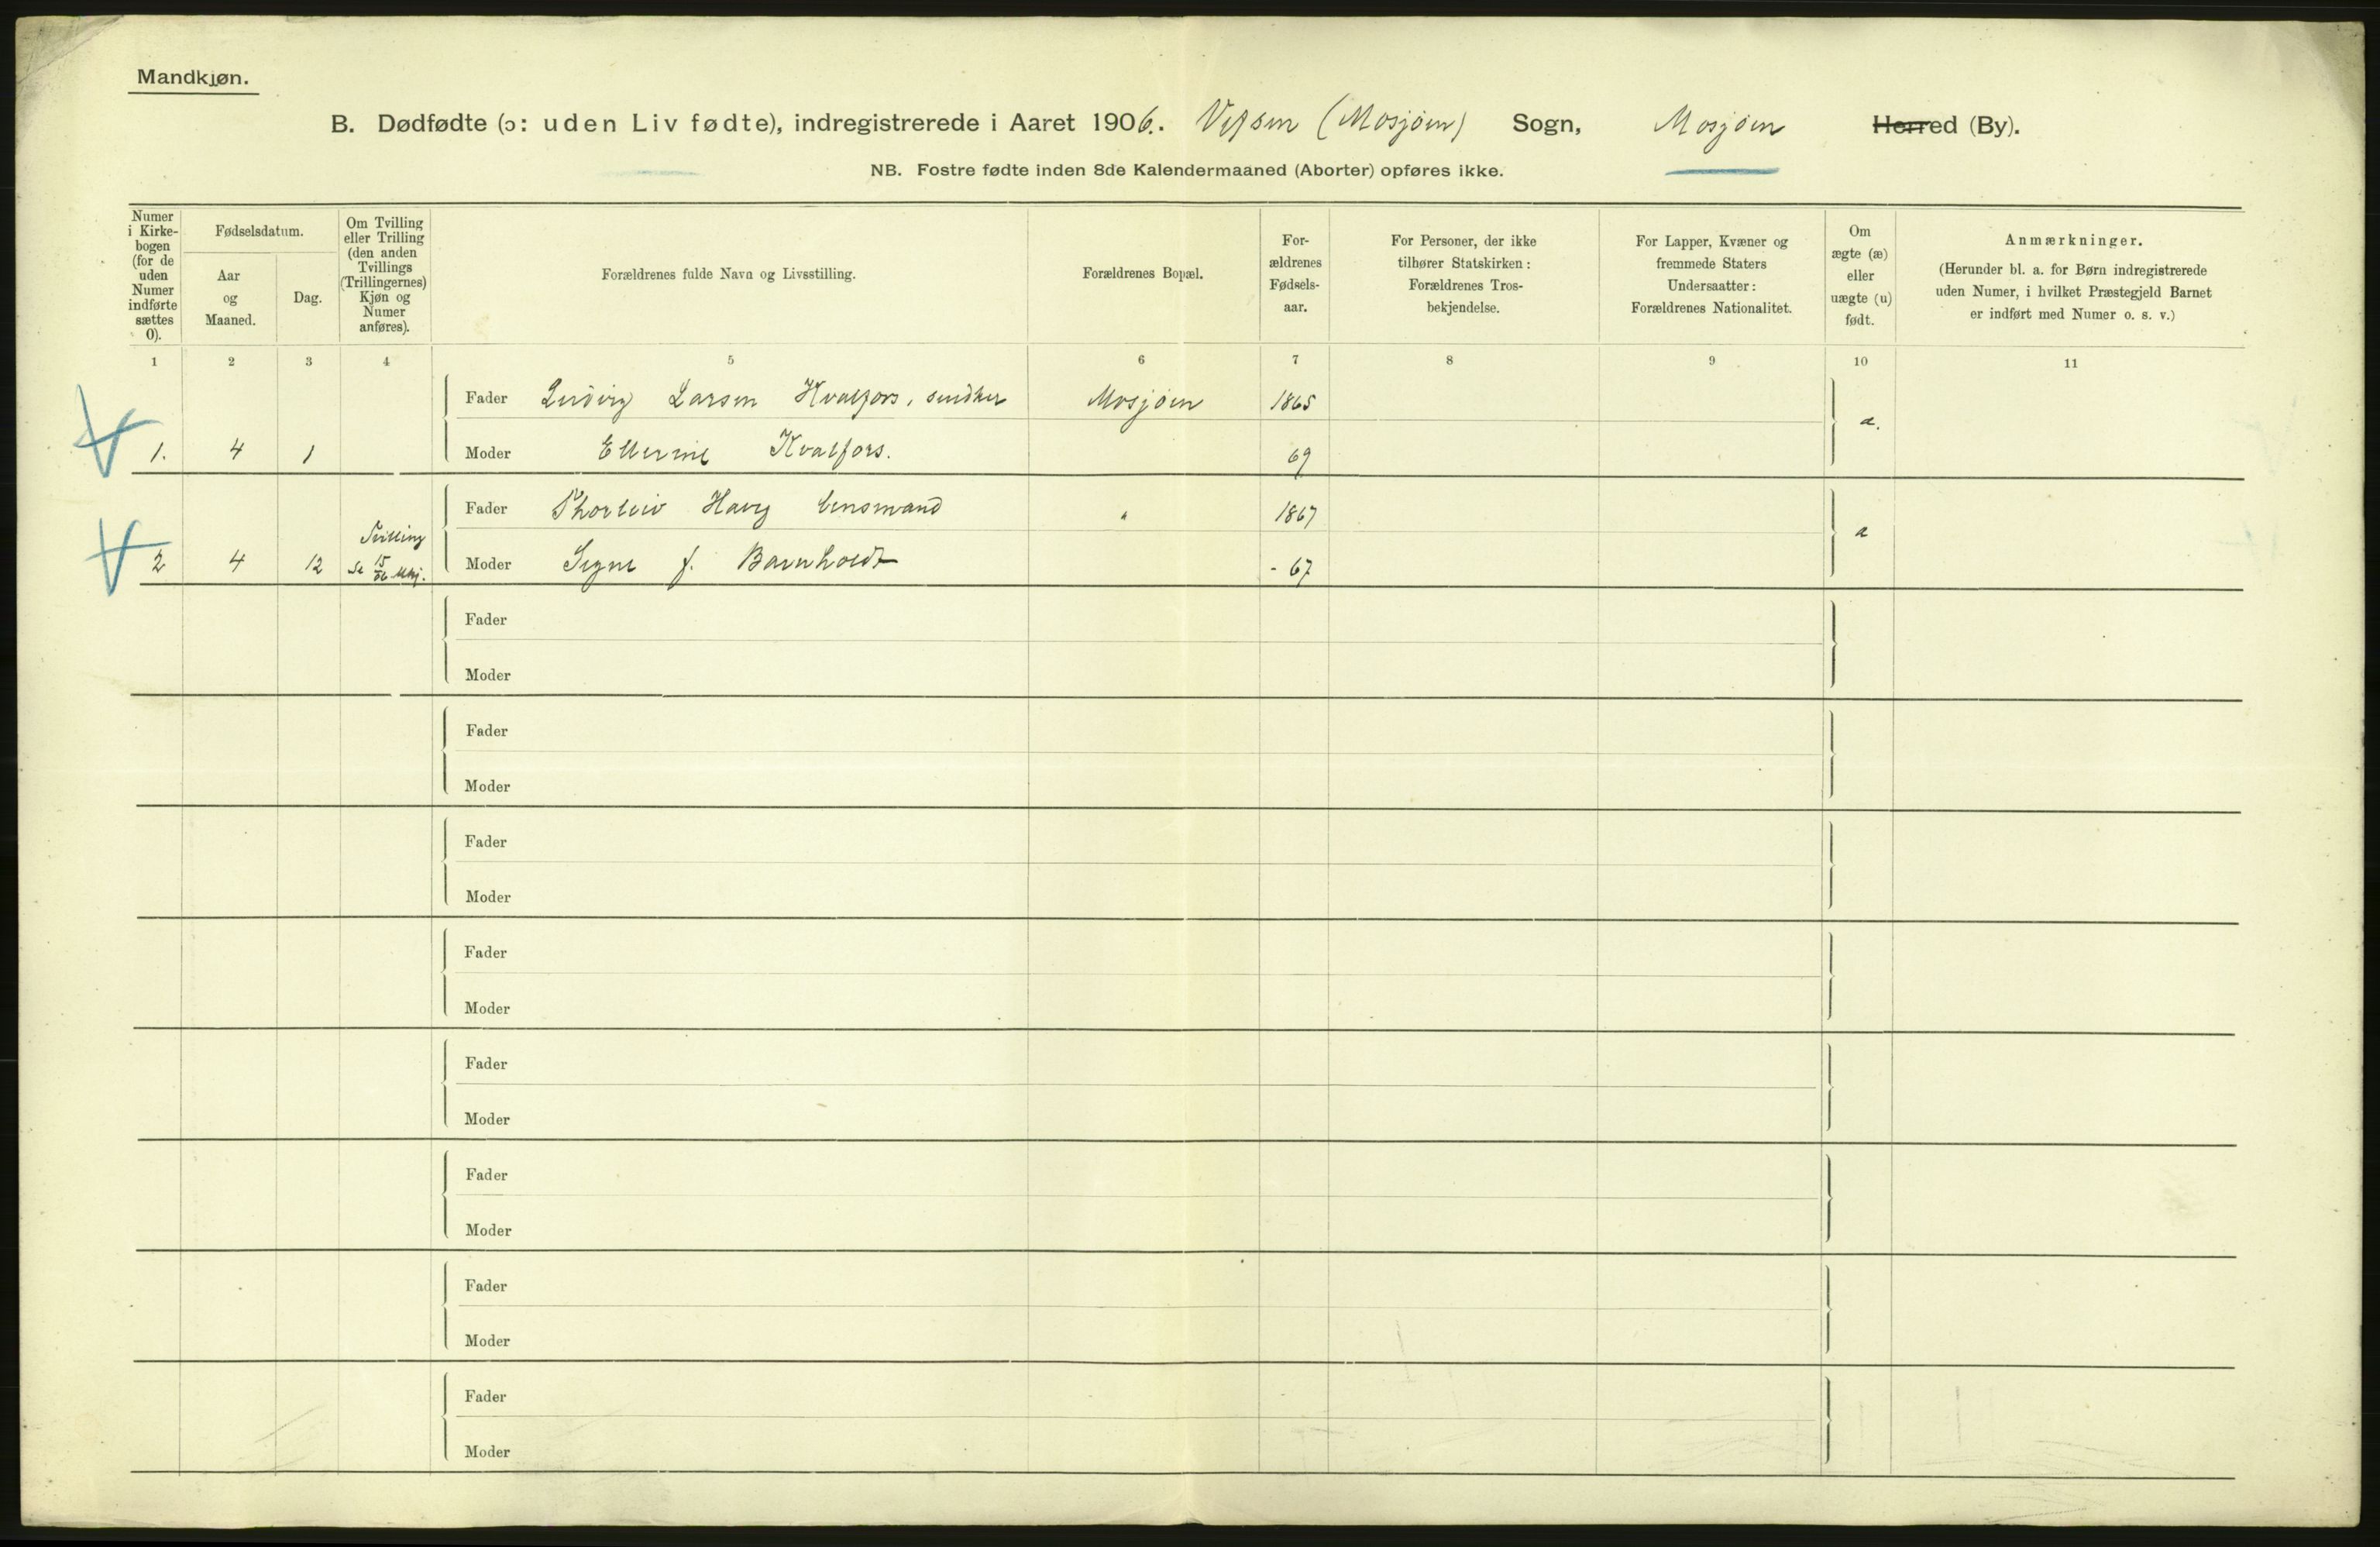 Mandkjøn.
B. Dødfødte (ɔ: uden Liv fødte), indregistrerede i Aaret 1906. Vefsen (Mosjøen) Sogn, Mosjøen Herred (By).
NB. Fostre fødte inden 8de Kalendermaaned (Aborter) opføres ikke.
Numer
i Kirke-
bogen
(for de
uden
Numer
indførte
sættes
0).
Fødselsdatum.
Aar
og
Maaned.
Dag.
Om Tvilling
eller Trilling
(den anden
Tvillings
(Trillingernes)
Kjøn og
Numer
anføres).
Forældrenes fulde Navn og Livsstilling.
Forældrenes Bopæl.
For-
ældrenes
Fødsels-
aar.
For Personer, der ikke
tilhører Statskirken:
Forældrenes Tros-
bekjendelse.
For Lapper, Kvæner og
fremmede Staters
Undersaatter:
Forældrenes Nationalitet.
Om
ægte (æ)
eller
uægte (u)
født.
Anmærkninger.
(Herunder bl. a. for Børn indregistrerede
uden Numer, i hvilket Præstegjeld Barnet
er indført med Numer o. s. v.)
1 2 3 4 5 6 7 8 9 10 11
Fader Ludvig Larsen Kvalfors, snedker Mosjøen 1865
1. 4 1 Moder Ellerine Kvalfors. 69 æ.
Fader Thorleiv Haug lensmand " 1867
Tvilling
2 4 12 se 15/06 Moder Signe f. Barnholdt - 67 æ
Fader
Moder
Fader
Moder
Fader
Moder
Fader
Moder
Fader
Moder
Fader
Moder
Fader
Moder
Fader
Moder